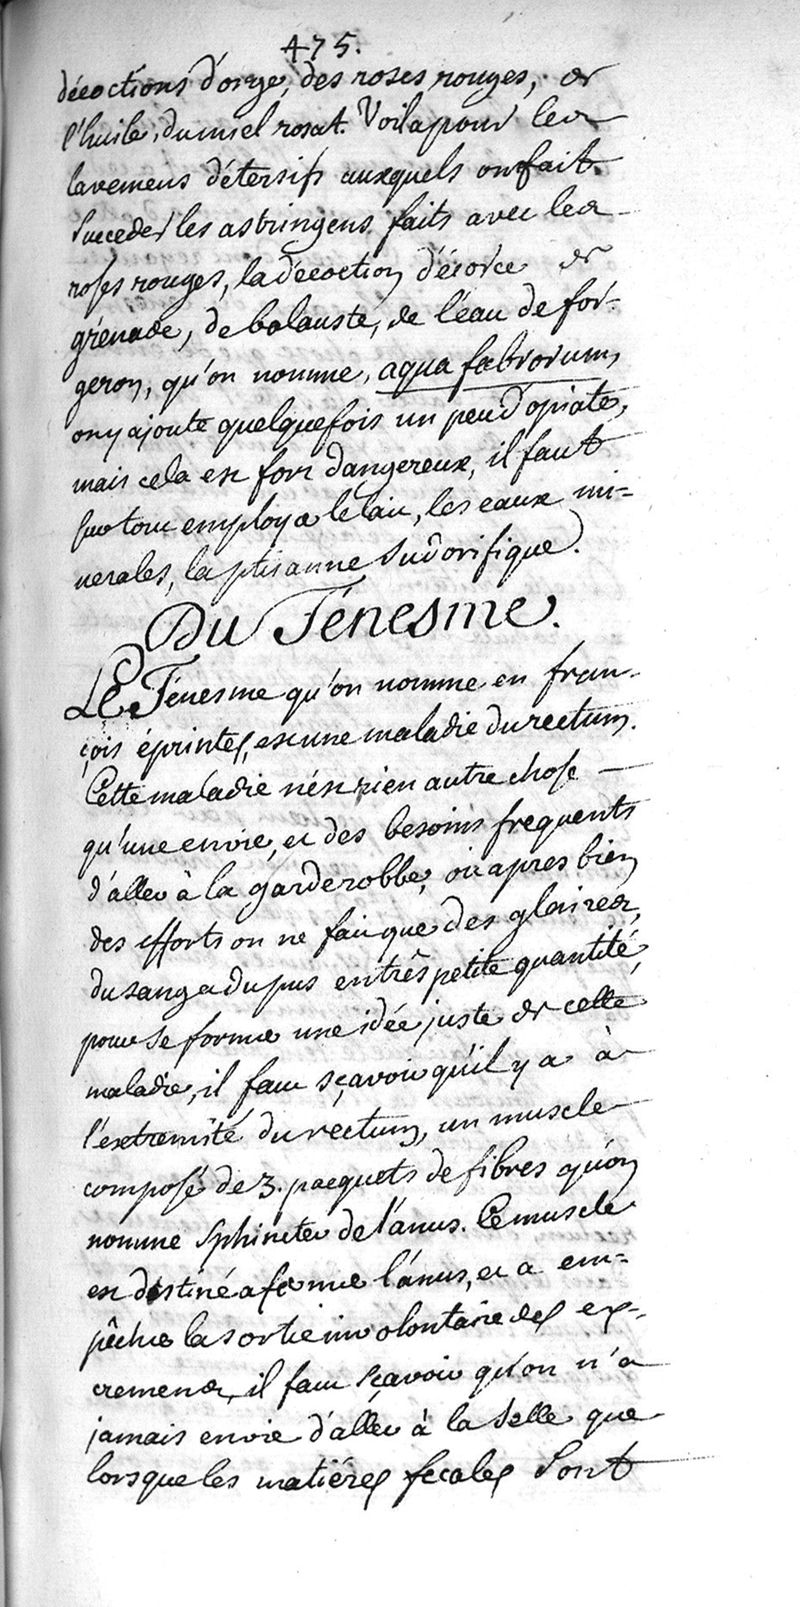 475.
décoctions d'orge, des roses rouges, de
l'huile, du miel rosat. Voila pour les
lavemens détersifs auxquels on fait
succeder les astringens faits avec les
roses rouges, la décoction d'écorce de
grénade, de balauste, de l'eau de for-
geron, qu'on nomme, aqua fabrorum,
on y ajoute quelquefois un peu d'opiate,
mais cela est fort dangereux, il faut
sur tout employer le lait, les eaux mi-
nerales, la ptisanne sudorifique.
Du Ténesme.
Le Ténesme qu'on nomme en fran-
çois éprintes, est une maladie du rectum.
Cette maladie n'est rien autre chose
qu'une envie, et des besoins frequents
d'aller à la garderobbe, où apres bien
des efforts on ne fait que des glaires,
du sang et du pus en très petite quantité,
pour se former une idée juste de cette
maladie, il faut sçavoir qu'il y a à
l'extremité du rectum, un muscle
composé de 3. pacquets de fibres qu'on
nomme sphincter de l'anus. Ce muscle
est destiné a fermer l'anus, et a em-
pêcher la sortie involontaire des ex-
cremens, il faut sçavoir qu'on n'a
jamais envie d'aller à la selle que
lorsque les matiéres fecales sont